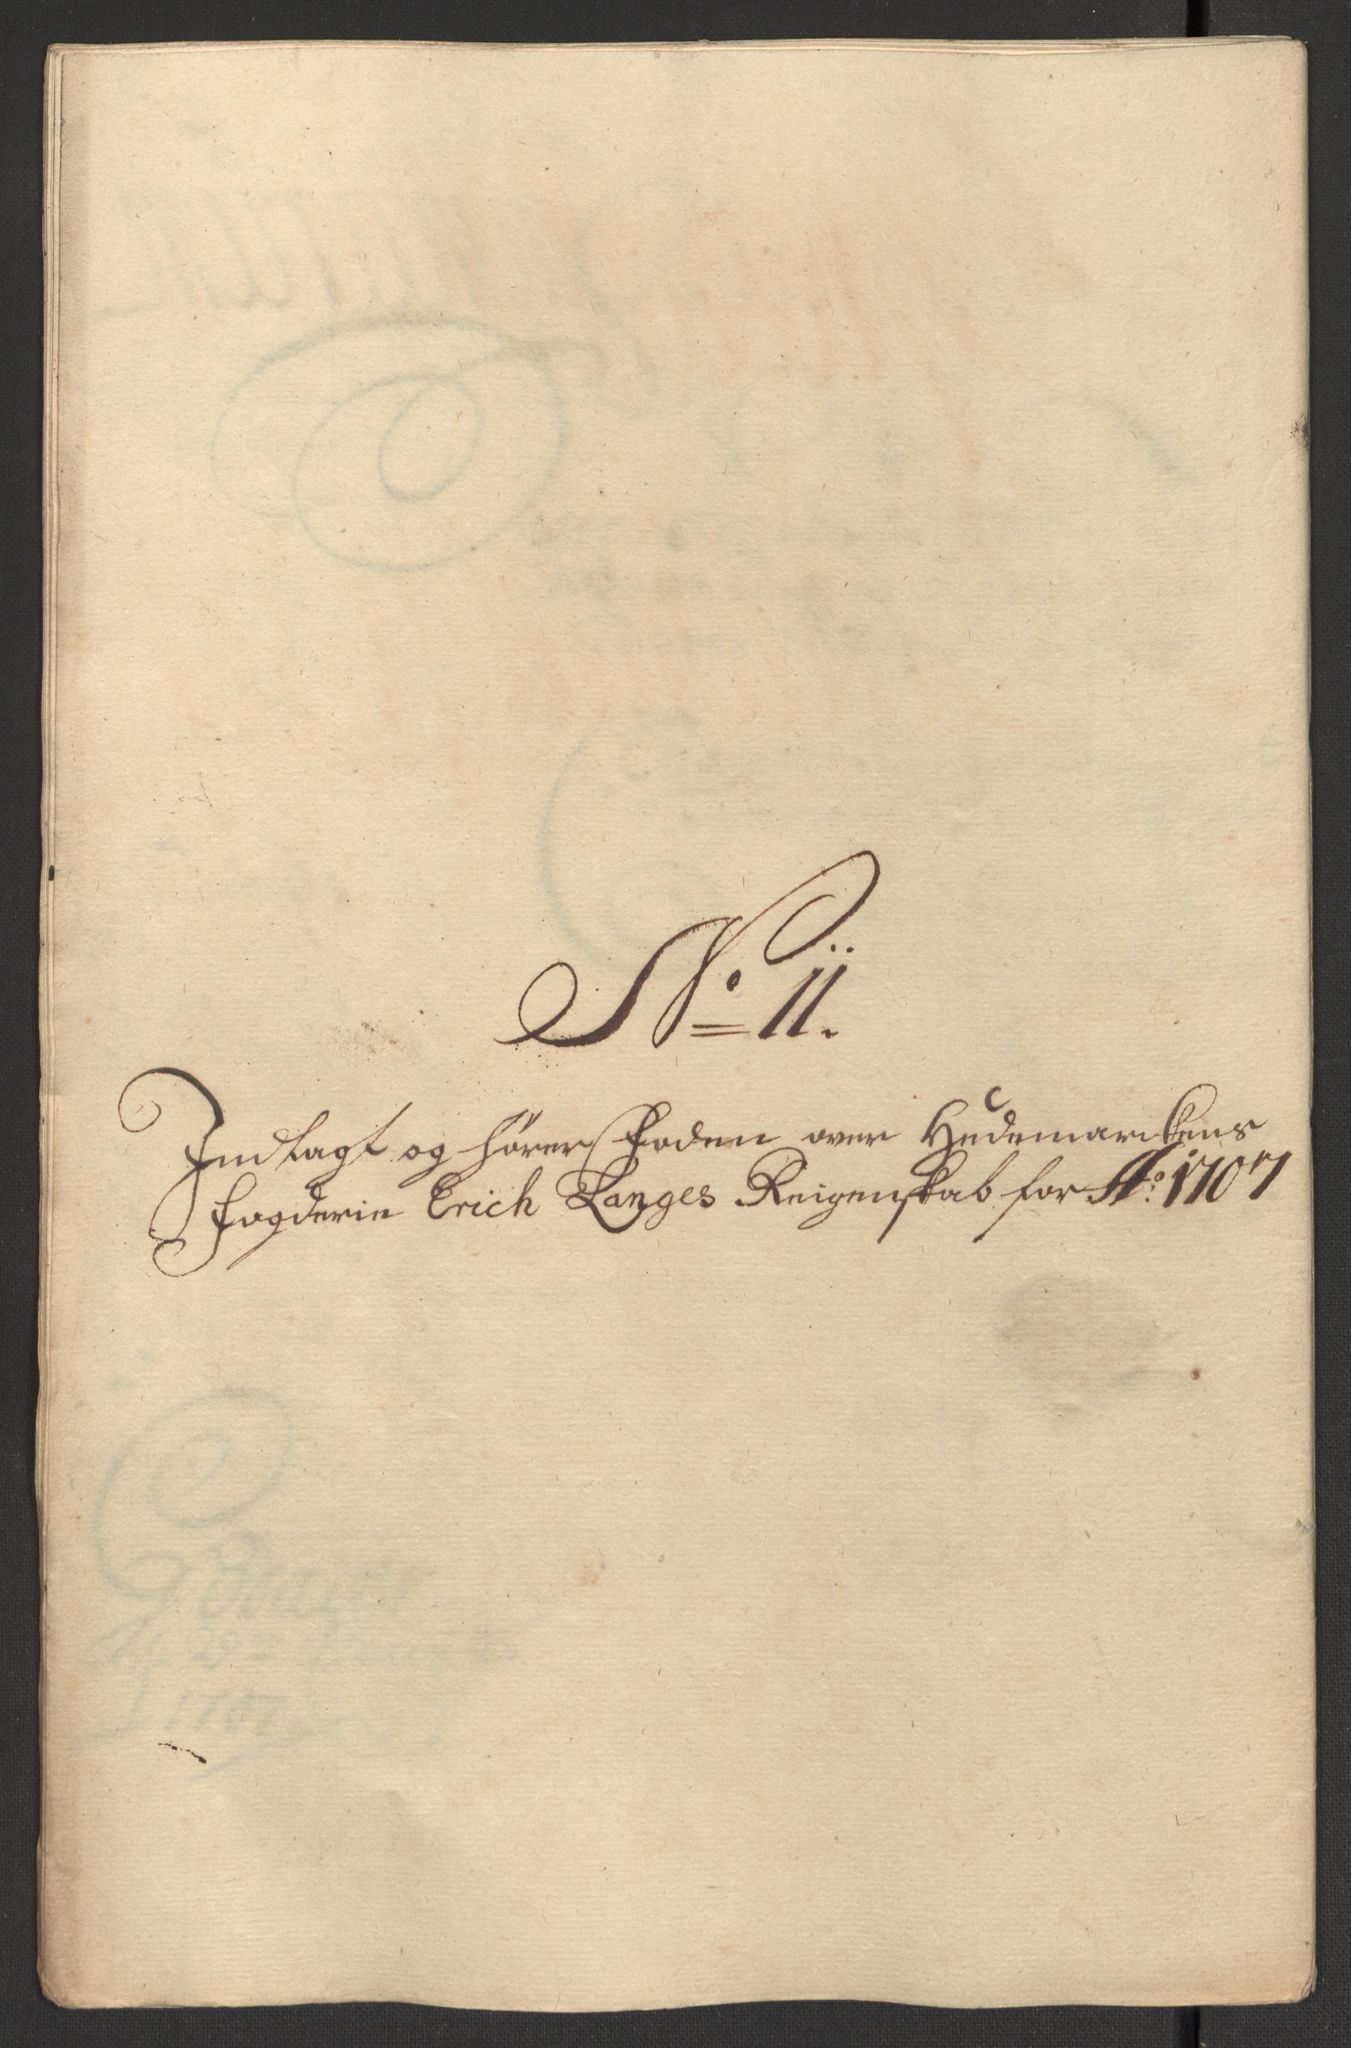 No: 11.
Indlagt og hører Foden over Hedemarckens
Fogderie Erich Langes Reigenskab for Ao: 1707